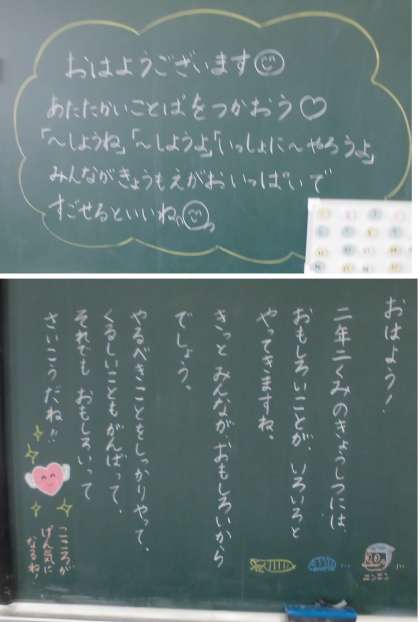 おはようございます
あたたかいことばをつかおう♡
「〜しようね」「〜しようよ」「いっしょに〜やろうよ」
みんながきょうもえがおいっぱいで
すごせるといいね。
おはよう!
二年二くみのきょうしつには、
おもしろいことが、いろいろと
やってきますね。
きっとみんなが、おもしろいから
でしょう。
やるべきことをしっかりやって、
くるしいこともがんばって、
それでも おもしろいって
さいこうだね!!
こころが
げん気に
なるね!
ニンニン